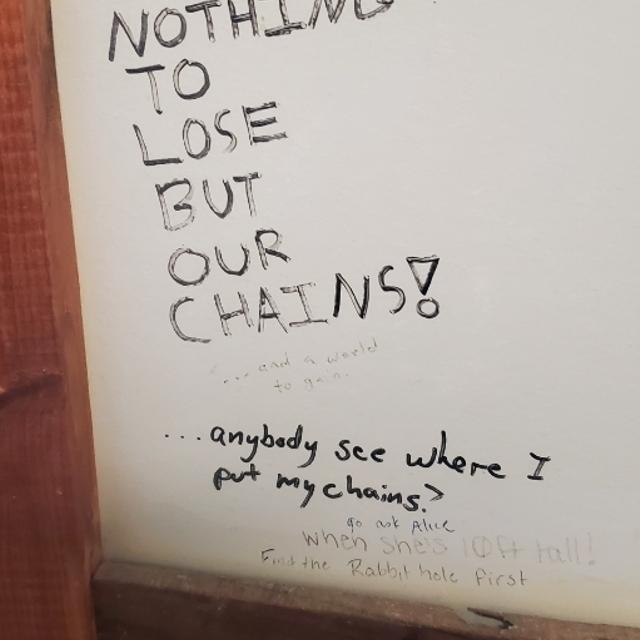 NOTHING
TO
LOSE
BUT
OUR
CHAINS!
...and a world
to gain.
...anybody see where I
put my chains?
go ask Alice
when she's 10ft tall!
Find the Rabbit hole first